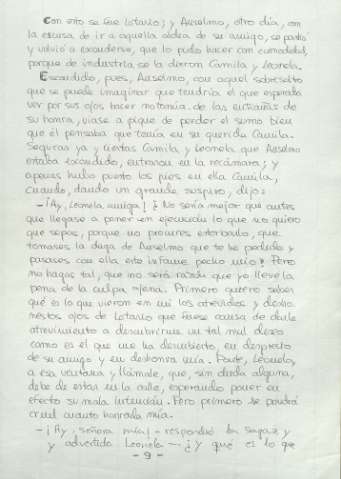 Con esto se fue Lotario; y Anselmo, otro día, con
la escusa de ir a aquella aldea de su amigo, se partió
y volvió a esconderse, que lo pudo hacer con comodidad,
porque de industria se la dieron Camila y Leonela.
Escondido, pues, Anselmo, con aquel sobresalto
que se puede imaginar que tendría el que esperaba
ver por sus ojos hacer notomía de las entrañas de
su honra, víase a pique de perder el sumo bien
que él pensaba que tenía en su querida Camila.
Seguras ya y ciertas Camila y Leonela que Anselmo
estaba escondido, entraron en la recámara; y
apenas hubo puesto los pies en ella Camila,
cuando, dando un grande suspiro, dijo:
- ¡Ay, Leonela amiga! ¿No sería mejor que antes
que llegase a poner en ejecución lo que no quiero
que sepas, porque no procures estorbarlo, que
tomases la daga de Anselmo que te he pedido y
pasases con ella este infame pecho mío? Pero
no hagas tal, que no será razón que yo lleve la
pena de la culpa ajena. Primero quiero saber
qué es lo que vieron en mí los atrevidos y desho-
nestos ojos de Lotario que fuese causa de darle
atrevimiento a descubrirme un tal mal deseo
como es el que me ha descubierto, en desprecio
de su amigo y en deshonra mía. Ponte, Leonela,
a esa ventana y llámale, que, sin duda alguna,
debe de estar en la calle, esperando poner en
efecto su mala intención. Pero primero se pondrá
cruel cuanto honrada mía.
- ¡Ay, señora mía! - respondió la sagaz y
y advertida Leonela -. ¿Y qué es lo que
- 9 -